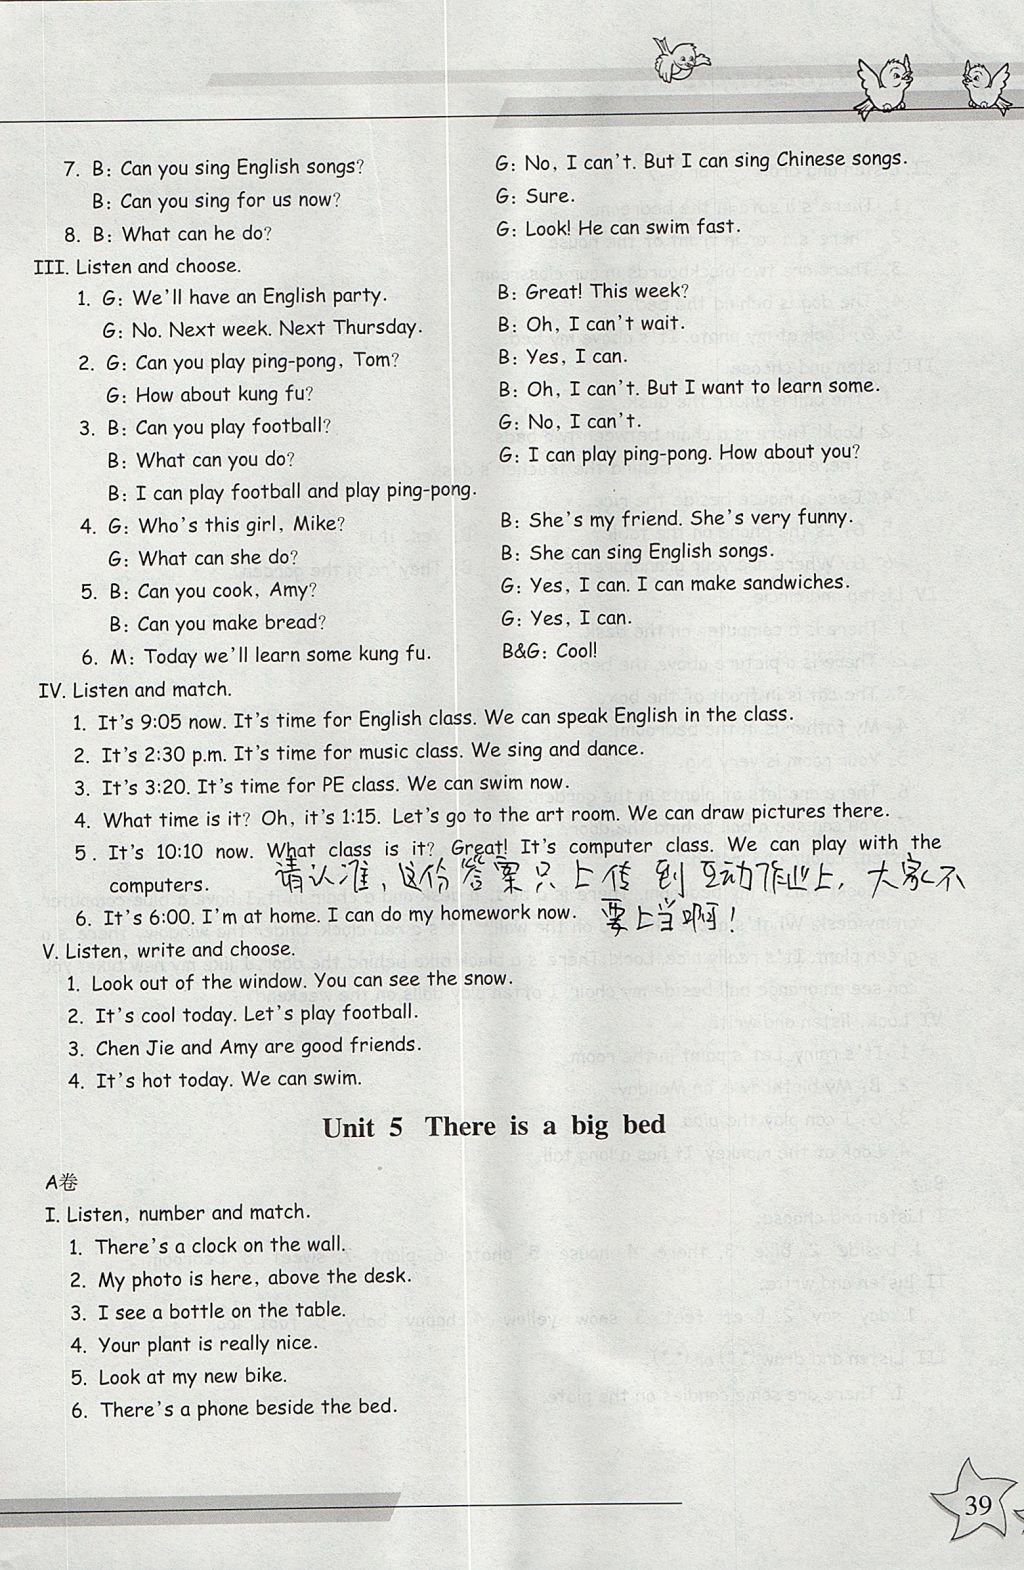 7. B: Can you sing English songs? G: No, I can't. But I can sing Chinese songs.
B: Can you sing for us now? G: Sure.
8. B: What can he do? G: Look! He can swim fast.
III. Listen and choose.
1. G: We'll have an English party. B: Great! This week?
G: No. Next week. Next Thursday. B: Oh, I can't wait.
2. G: Can you play ping-pong, Tom? B: Yes, I can.
G: How about kung fu? B: Oh, I can't. But I want to learn some.
3. B: Can you play football? G: No, I can't.
B: What can you do? G: I can play ping-pong. How about you?
B: I can play football and play ping-pong.
4. G: Who's this girl, Mike? B: She's my friend. She's very funny.
G: What can she do? B: She can sing English songs.
5. B: Can you cook, Amy? G: Yes, I can. I can make sandwiches.
B: Can you make bread? G: Yes, I can.
6. M: Today we'll learn some kung fu. B&G: Cool!
IV. Listen and match.
1. It's 9:05 now. It's time for English class. We can speak English in the class.
2. It's 2:30 p.m. It's time for music class. We sing and dance.
3. It's 3:20. It's time for PE class. We can swim now.
4. What time is it? Oh, it's 1:15. Let's go to the art room. We can draw pictures there.
5. It's 10:10 now. What class is it? Great! It's computer class. We can play with the
computers. 请认准，这份答案只上传到互动作业上，大家不
6. It's 6:00. I'm at home. I can do my homework now. 要上当啊！
V. Listen, write and choose.
1. Look out of the window. You can see the snow.
2. It's cool today. Let's play football.
3. Chen Jie and Amy are good friends.
4. It's hot today. We can swim.
Unit 5 There is a big bed
A卷
I. Listen, number and match.
1. There's a clock on the wall.
2. My photo is here, above the desk.
3. I see a bottle on the table.
4. Your plant is really nice.
5. Look at my new bike.
6. There's a phone beside the bed.
39